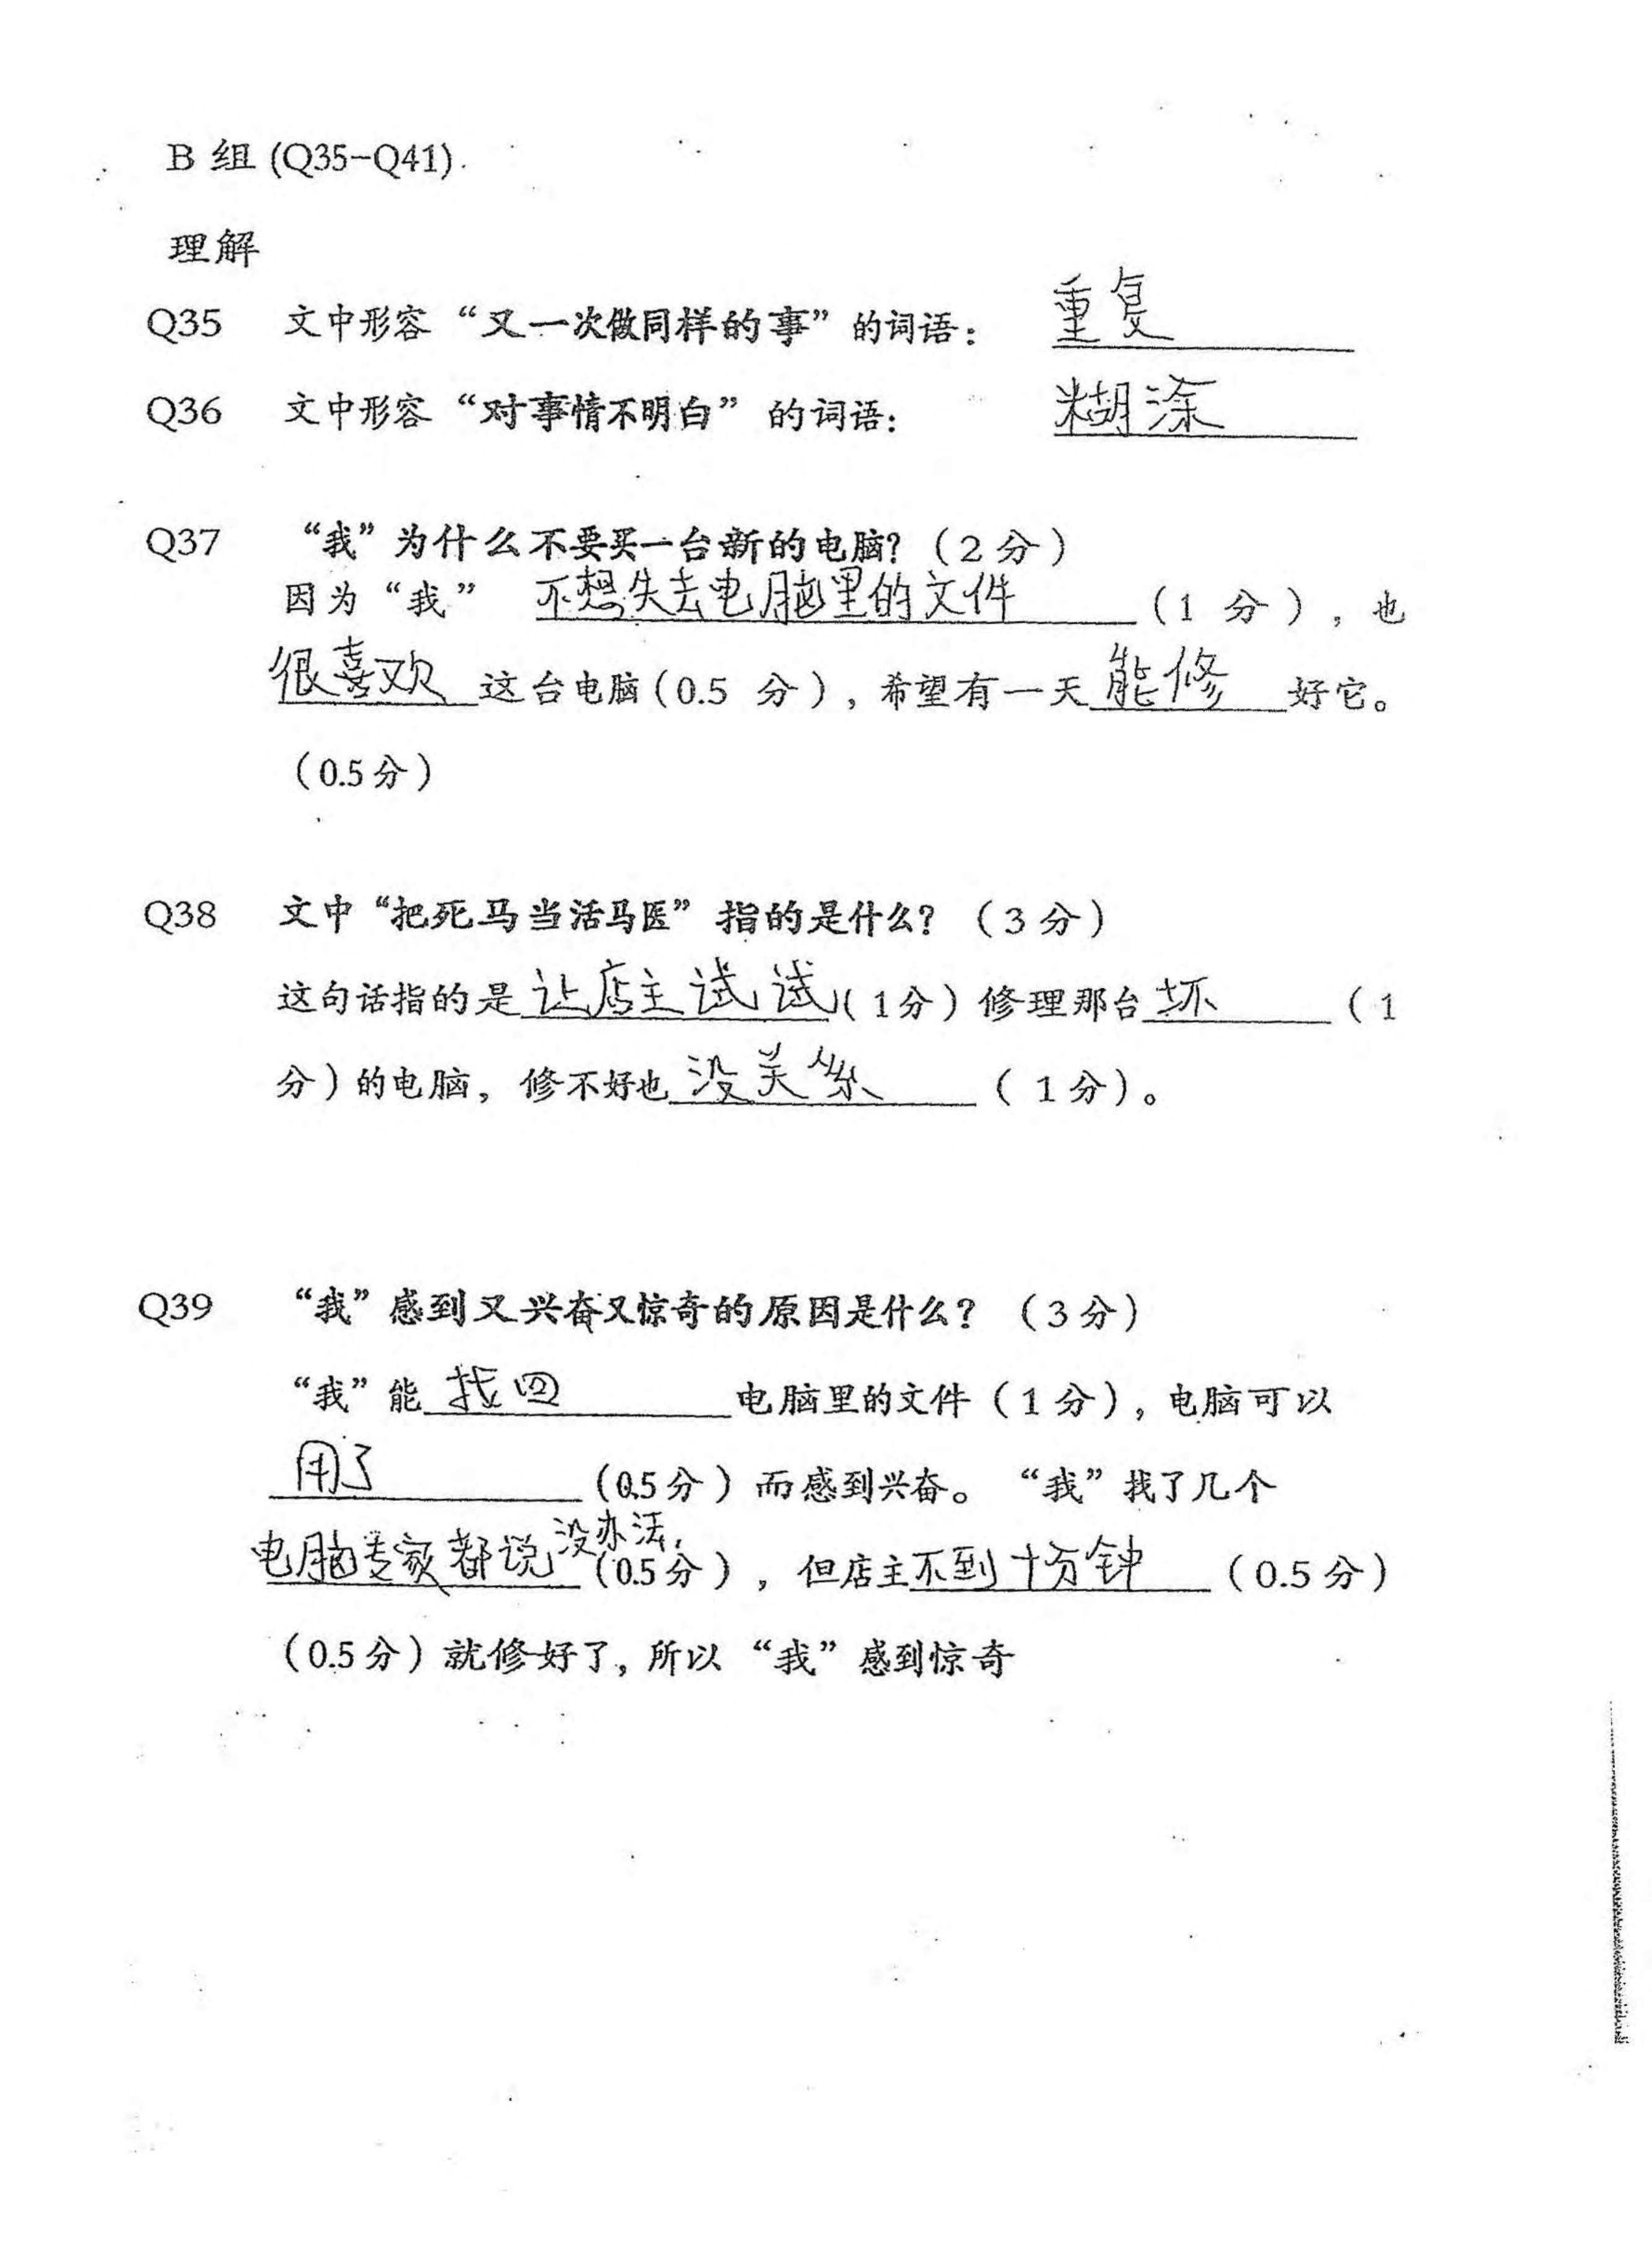 B 组 (Q35-Q41).
理解
Q35 文中形容 “又一次做同样的事” 的词语: 重复
Q36 文中形容 “对事情不明白” 的词语: 糊涂
Q37 “我”为什么不要买一台新的电脑? (2分)
因为“我” 不想失去电脑里的文件 (1 分), 也
很喜欢 这台电脑(0.5 分), 希望有一天 能修 好它。
(0.5分)
Q38 文中“把死马当活马医” 指的是什么? (3分)
这句话指的是 让店主试试 (1分) 修理那台 坏 (1
分) 的电脑, 修不好也 没关系 (1分)。
Q39 “我”感到又兴奋又惊奇的原因是什么? (3分)
“我”能 找回 电脑里的文件 (1分), 电脑可以
用了 (0.5分) 而感到兴奋。 “我”找了几个
电脑专家都说没办法, (0.5分), 但店主 不到十分钟 (0.5分)
(0.5分) 就修好了, 所以 “我”感到惊奇